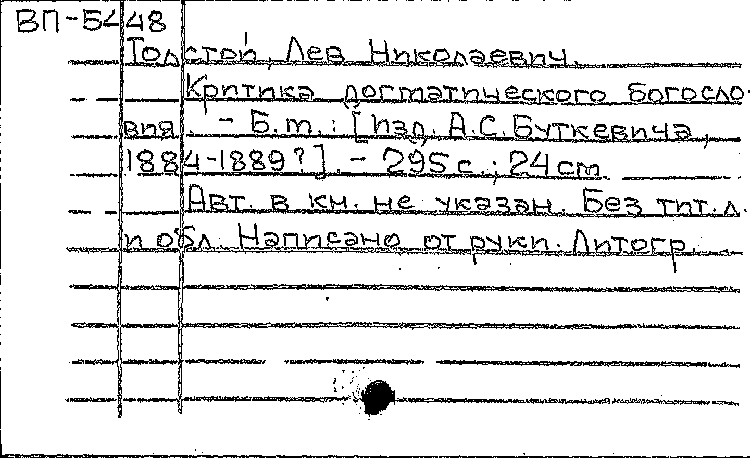 ВП-5448
Толстой, Лев Николаевич.
Критика догматического богосло-
вия. - Б.м.: [Изд. А.С.Буткевича,
1884-1889?]. - 295 с.; 24 cm.
Авт. в кн. не указан. Без тит. л.
и обл. Написано от руки. Литогр.